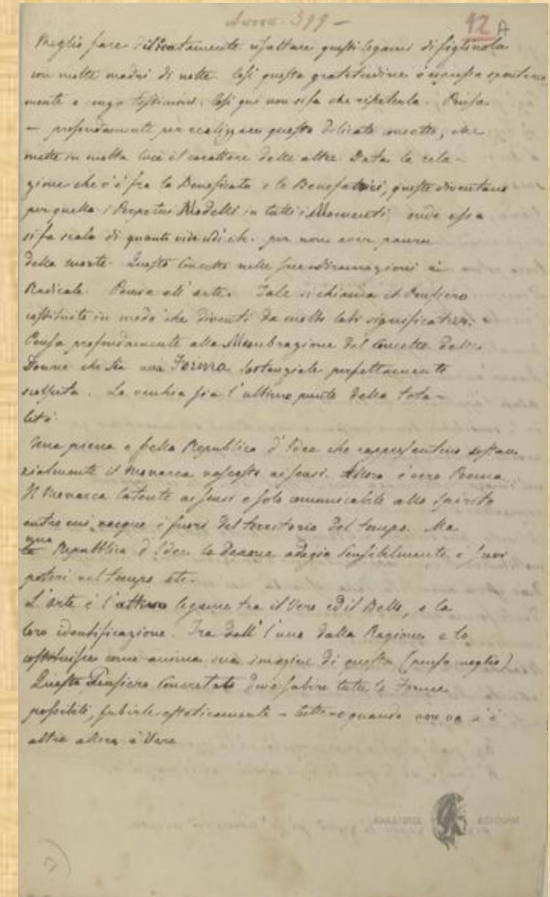 Annon. 399 –
12 A
Meglio fare delicatamente risaltare questi legami di figliuola
con molte madri di notte. Così questa gratitudine è espressa spontanea
mente e senza testimoni. Così qui non si fa che ripeterla. Pensa
– profondamente per realizzare questo delicato concetto, che
mette in molta luce il carattere delle altre. Data la rela-
zione che c'è fra la Beneficata e le Benefatrici, queste diventano
per quella i Perpetui Modelli in tutti i Momenti onde essa
si fa scala di quanti vide per non aver paura
della morte. Questo Concetto nelle sue diramazioni è
Radicale. Pensa all'arte. Tale si chiama il Pensiero
costituito in modo che diventi da molti lati significativo.
Pensa profondamente alla Membrazione del Concetto delle
Donne che sia una Forma sostanziale perfettamente
scolpita. La vecchia sia l'ultimo punto della tota-
lità.
Una piena e bella Repubblica d'Idee che rappresentino sostan
zialmente il monarca nascosto ai sensi. Allora è vero Poema.
Il Monarca latente ai sensi e solo comunicabile allo Spirito
entro cui nacque è fuori del territorio del tempo. Ma
una Repubblica d'Idee lo adagia sensibilmente i suoi
poteri nel tempo etc.
L'arte è l'attivo legame tra il Vero ed il Bello, e la
loro identificazione. Tra dall' l'uno dalla Ragione e lo
costituisce come anima sua imagine di questa (pensa meglio)
Questo Pensiero Concretato deve subire tutte le Forme
possibili, subirle estaticamente – tutte – e quando non ve n'è
altra allora è Vero